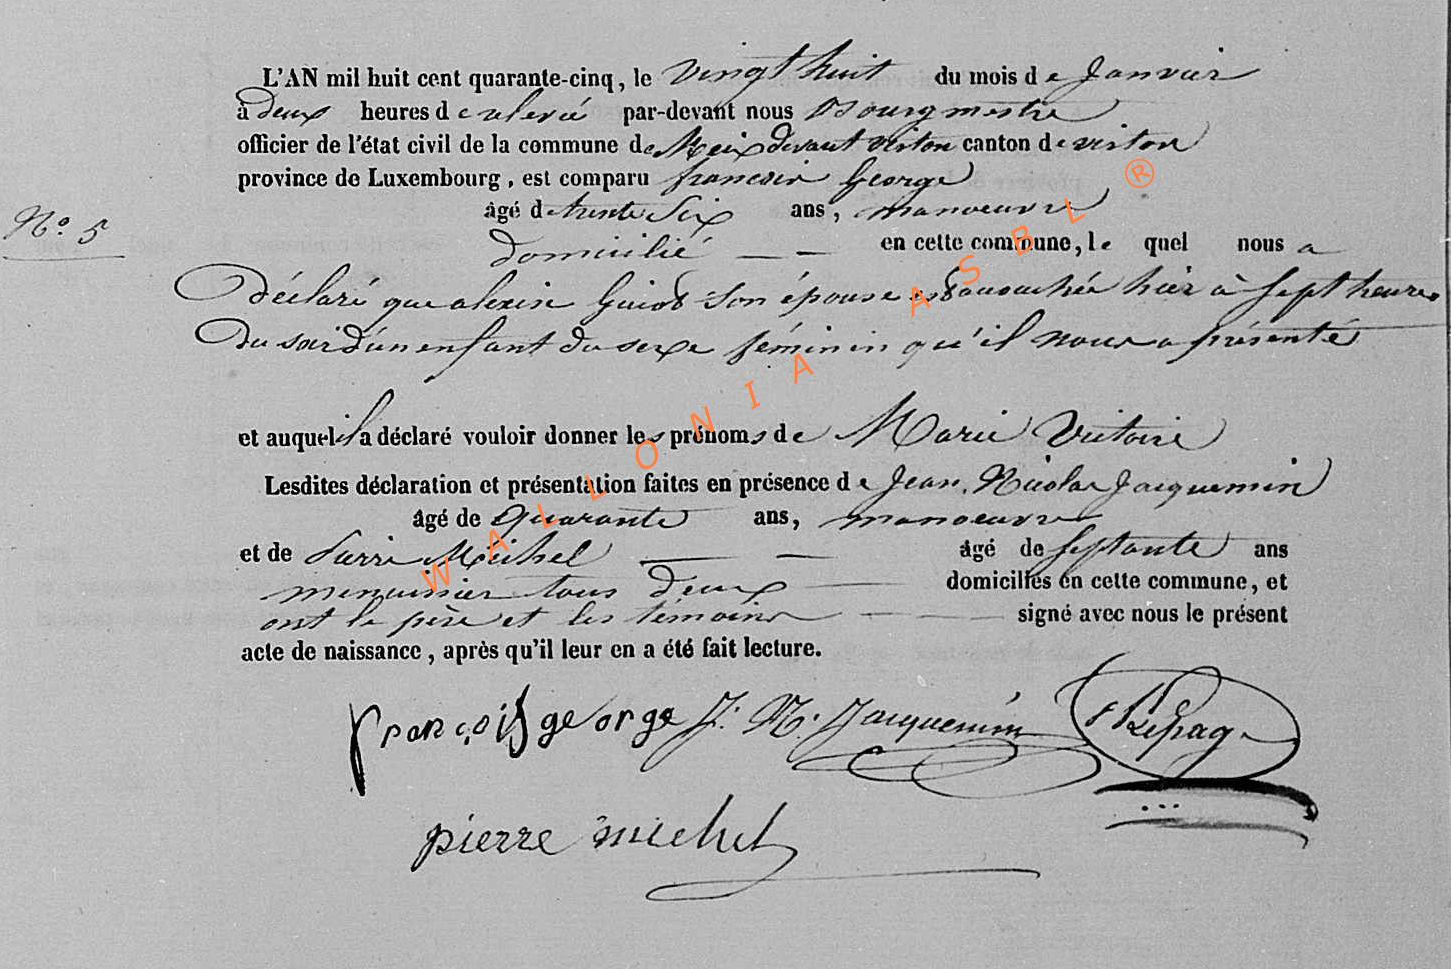 L'AN mil huit cent quarante-cinq, le vingt huit du mois de Janvier
à deux heures de relevée par-devant nous Bourgmestre
officier de l'état civil de la commune de Meix devant virton canton de virton
province de Luxembourg, est comparu françois George
âgé de trente Six ans, manoeuvre
N.o 5
domicilié en cette commune, le quel nous a
Déclaré que alexise Guiot Son épouse est accouchée hier à Sept heures
Du soir d'un enfant du sexe féminin qu'il nous a présenté
et auquel il a déclaré vouloir donner les prénoms de Marie Victoire
Lesdites déclaration et présentation faites en présence de Jean Nicolas Jacquemin
âgé de Quarante ans, manoeuvre
et de Pierre Michel âgé de Septante ans
menuisier tous deux domiciliés en cette commune, et
ont le père et les témoins signé avec nous le présent
acte de naissance, après qu'il leur en a été fait lecture.
françois george J. N. Jacquemin Lepage
pierre michel
WALLONIA ASBL ®